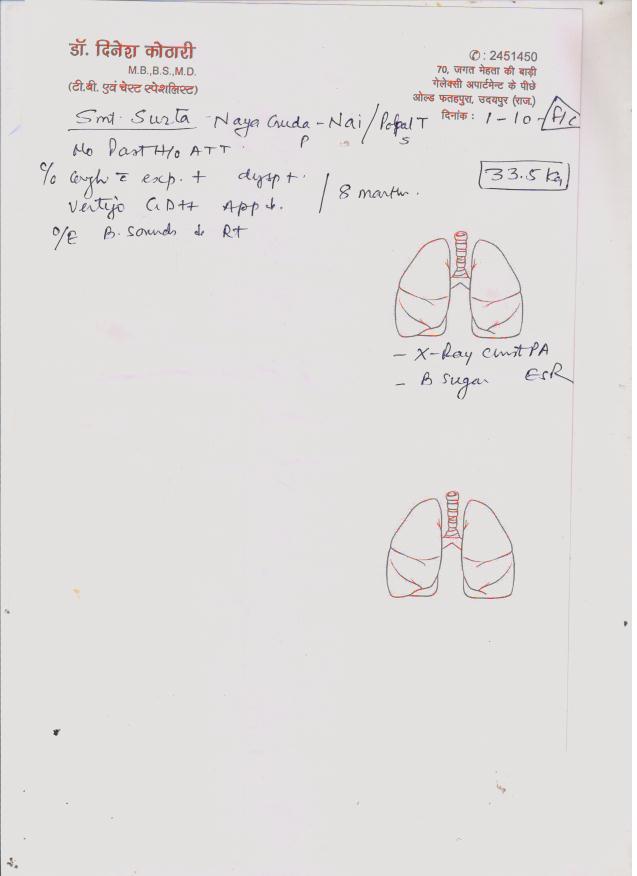 डॉ. दिनेश कोठारी
M.B.,B.S.,M.D.
(टी.बी. एवं चेस्ट स्पेशलिस्ट)
✆ : 2451450
70, जगत मेहता की बाड़ी
गेलेक्सी अपार्टमेन्ट के पीछे
ओल्ड फतहपुरा, उदयपुर (राज.)
दिनांक : 1-10-
Smt. Surta Naya Guda - Nai /
P S
No Past H/o ATT.
C/o Cough c̄ exp. + dysp +.
Vertijo GD++ App ↓. / 8 month.
33.5 Kg
O/E B. Sounds ↓ Rt
- X-Ray Chest PA
- B Sugar ESR